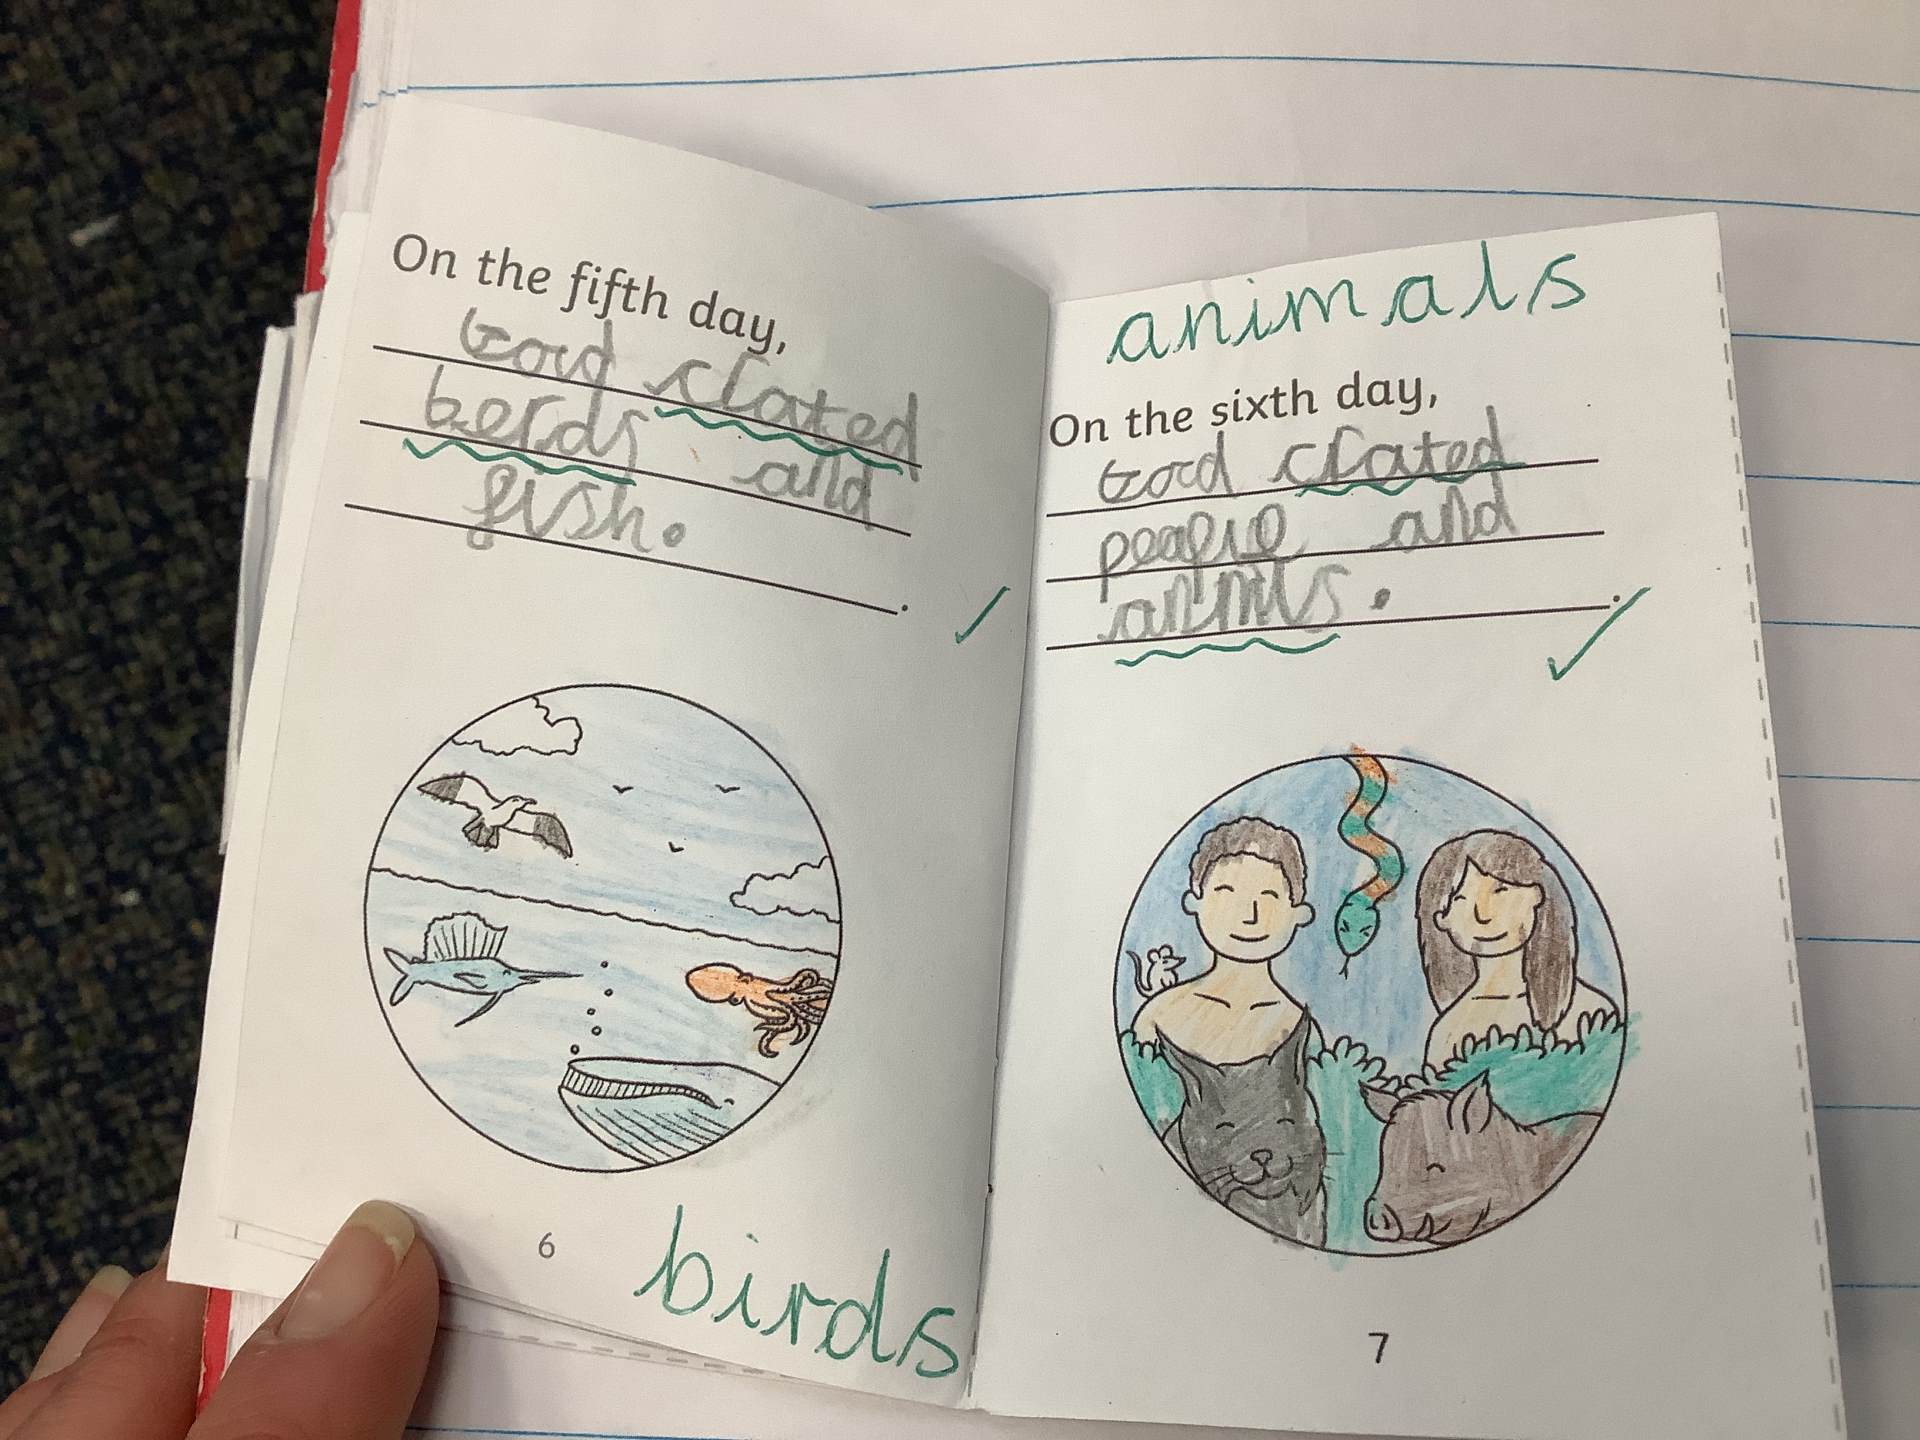 On the fifth day,
God crated
berds and
fish.
.
6
birds
animals
On the sixth day,
God crated
peaple and
animls.
.
7